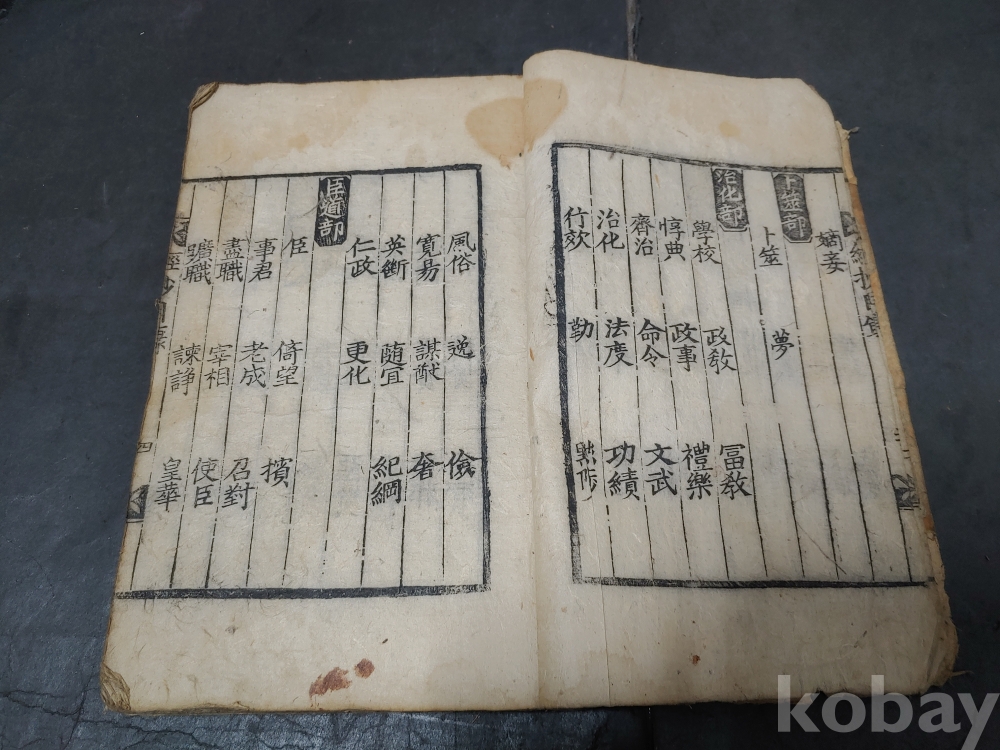 嫡妾
卜筮部
卜筮 夢
治化部
學校 政教 冨教
惇典 政事 禮樂
齊治 命令 文武
治化 法度 功績
行效 勤
風俗 逸 儉
寬易 謀猷 奢
英斷 随宜 紀綱
仁政 更化
臣道部
臣 倚望 擯
事君 老成 召對
盡職 宰相 使臣
曠職 諫諍 皇華
四
kobay